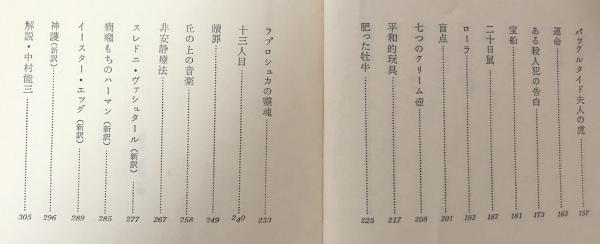 パックルタイド夫人の虎 157
運命 163
ある殺人犯の告白 173
宝船 181
二十日鼠 187
ローラ 193
盲点 201
七つのクリーム壺 208
平和的玩具 217
肥った牡牛 225
ラプロシュカの霊魂 233
十三人目 240
贖罪 249
丘の上の音楽 258
非安静療法 267
スレドニ・ヴァシュタール(新訳) 277
病癪もちのハーマン(新訳) 285
イースター・エッグ(新訳) 289
神護(新訳) 296
解説・中村能三 305